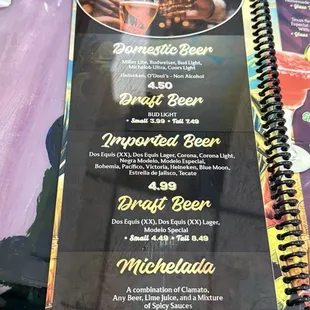 Domestic Beer
Miller Lite, Budweiser, Bud Light,
Michelob Ultra, Coors Light
Heineken, O'Doul's - Non Alcohol
4.50
Draft Beer
BUD LIGHT
• Small 3.99 • Tall 7.49
Imported Beer
Dos Equis (XX), Dos Equis Lager, Corona, Corona Light,
Negra Modelo, Modelo Especial,
Bohemia, Pacifico, Victoria, Heineken, Blue Moon,
Estrella de Jalisco, Tecate
4.99
Draft Beer
Dos Equis (XX), Dos Equis (XX) Lager,
Modelo Special
• Small 4.49 • Tall 8.49
Michelada
A combination of Clamato,
Any Beer, Lime Juice, and a Mixture
of Spicy Sauces